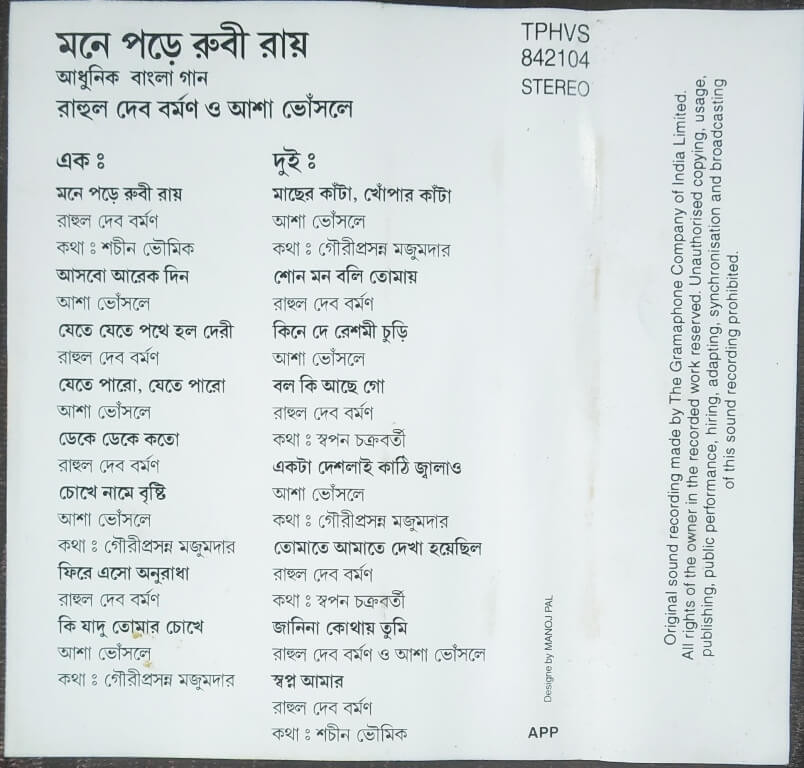 মনে পড়ে রুবী রায়
আধুনিক বাংলা গান
রাহুল দেব বর্মণ ও আশা ভোঁসলে
TPHVS
842104
STEREO
এক ঃ
মনে পড়ে রুবী রায়
রাহুল দেব বর্মণ
কথা ঃ শচীন ভৌমিক
আসবো আরেক দিন
আশা ভোঁসলে
যেতে যেতে পথে হল দেরী
রাহুল দেব বর্মণ
যেতে পারো, যেতে পারো
আশা ভোঁসলে
ডেকে ডেকে কতো
রাহুল দেব বর্মণ
চোখে নামে বৃষ্টি
আশা ভোঁসলে
কথা ঃ গৌরীপ্রসন্ন মজুমদার
ফিরে এসো অনুরাধা
রাহুল দেব বর্মণ
কি যাদু তোমার চোখে
আশা ভোঁসলে
কথা ঃ গৌরীপ্রসন্ন মজুমদার
দুই ঃ
মাছের কাঁটা, খোঁপার কাঁটা
আশা ভোঁসলে
কথা ঃ গৌরীপ্রসন্ন মজুমদার
শোন মন বলি তোমায়
রাহুল দেব বর্মণ
কিনে দে রেশমী চুড়ি
আশা ভোঁসলে
বল কি আছে গো
রাহুল দেব বর্মণ
কথা ঃ স্বপন চক্রবর্তী
একটা দেশলাই কাঠি জ্বালাও
আশা ভোঁসলে
কথা ঃ গৌরীপ্রসন্ন মজুমদার
তোমাতে আমাতে দেখা হয়েছিল
রাহুল দেব বর্মণ
কথা ঃ স্বপন চক্রবর্তী
জানিনা কোথায় তুমি
রাহুল দেব বর্মণ ও আশা ভোঁসলে
স্বপ্ন আমার
রাহুল দেব বর্মণ
কথা ঃ শচীন ভৌমিক
Designe by MANOJ PAL
APP
Original sound recording made by The Gramaphone Company of India Limited.
All rights of the owner in the recorded work reserved. Unauthorised copying, usage,
publishing, public performance, hiring, adapting, synchronisation and broadcasting
of this sound recording prohibited.